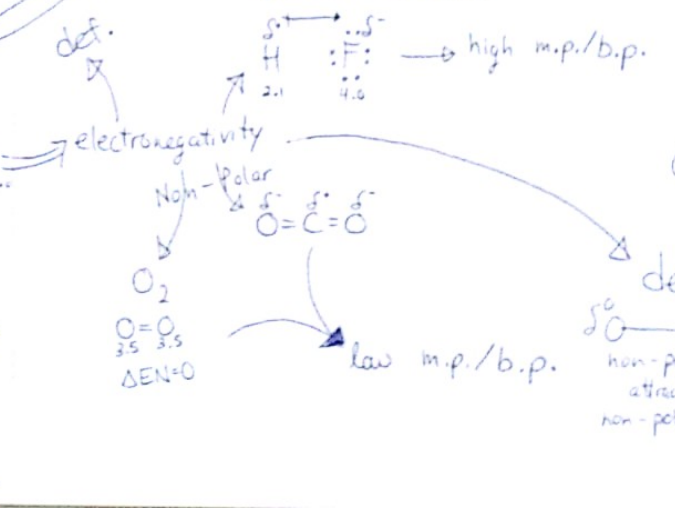 def.
δ⁺ δ⁻
H :F: → high m.p./b.p.
2.1 4.0
electronegativity
Non-Polar
δ⁻ δ⁺ δ⁻
O=C=O
O₂
O=O
3.5 3.5
ΔEN=0
low m.p./b.p.
de
δ⁰O
non-p
attrac
non-pol